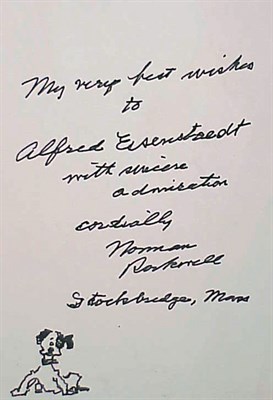 My very best wishes
to
Alfred Eisenstaedt
with sincere
admiration
cordially
Norman
Rockwell
Stockbridge, Mass